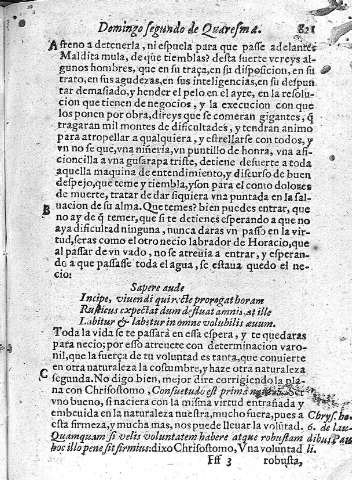 Domingo segundo de Quaresma. 821
A freno a detenerla, ni espuela para que passe adelante:
Maldita mula, de que tiemblas? desta suerte vereys al-
gunos hombres, que en su traça, en su disposicion, en su
trato, en sus agudezas, en sus inteligencias, al despun-
tar demasiado, y hender el pelo en el ayre, en la resolu-
cion que tienen de negocios, y la execucion con que
los ponen por obra, direys que se comeran gigantes, q̃
tragaran mil montes de dificultades, y tendran animo
para atropellar a qualquiera, y estrellarse con todos, y
vn no se que, vna niñeria, vn puntillo de honra, vna afi-
cioncilla a vna gusarapa triste, detiene desuerte a toda
aquella maquina de entendimiento, y discurso de buen
despejo, que teme y tiembla, y son para el como dolores
de muerte, tratar de dar siquiera vna puntada en la sal-
uacion de su alma. Que temes? bien puedes entrar, que
B no ay de q̃ temer, que si te detienes esperando a que no
aya dificultad ninguna, nunca daras vn passo en la vir-
tud, seras como el otro necio labrador de Horacio, que
al passar de vn vado, no se atreuia a entrar, y esperan-
do a que passasse toda el agua, se estaua quedo el ne-
cio:
Sapere aude
Incipe, viuendi qui recte prorogat horam
Rusticus expectat dum defluat amnis, at ille
Labitur & labetur in omne volubilis æuum.
Toda la vida se te passará en essa espera, y te quedaras
para necio; por esso atreuete con determinacion varo-
nil, que la fuerça de tu voluntad es tanta, que conuierte
en otra naturaleza la costumbre, y haze otra naturaleza
C segunda. No digo bien, mejor dire corrigiendo la pla-
na con Chrisostomo, Consuetudo est prima Ser
vno bueno, si naciera con la misma virtud entrañada y
embeuida en la naturaleza nuestra, mucho fuera, pues a Chrys. ho.
esta firmeza, y mucha mas, nos puede lleuar la volũtad. 6. de lau-
Quamquam si velis voluntatem habere atque robustam dibus Pau
hoc illo pene sit firmius: dixo Chrisostomo, Vna voluntad li.
Fff 3 robusta,